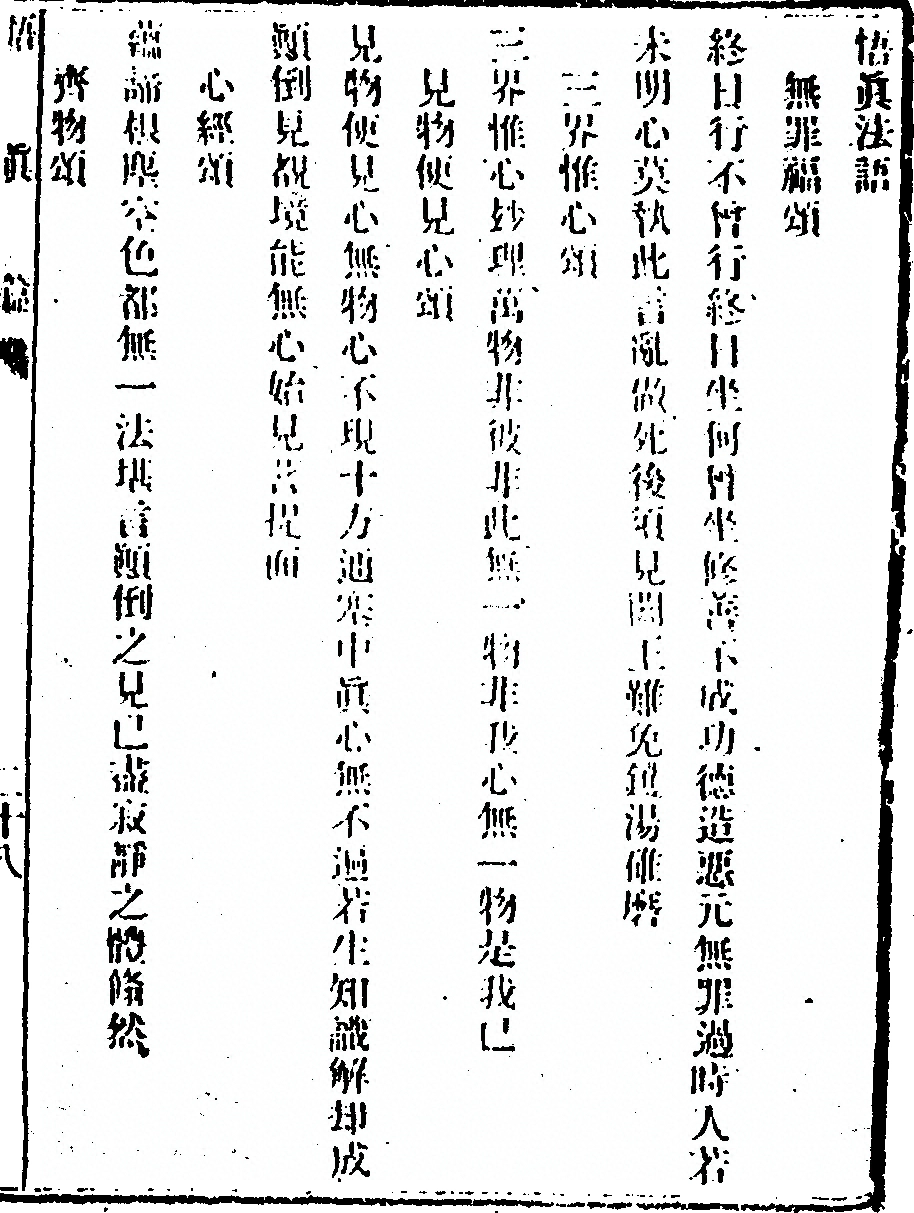 悟眞法語
無罪福頌
終日行不曾行終日坐何曾坐修善不成功德造惡元無罪過時人若
未明心莫執此言亂做死後須見閻王難免鑊湯碓磨
三界惟心頌
三界惟心妙理萬物非彼非此無一物非我心無一物是我已
見物便見心頌
見物便見心無物心不現十方通塞中眞心無不遍若生知識解却成
顚倒見覩境能無心始見菩提面
心經頌
蘊諦根塵空色都無一法堪言顚倒之見已盡寂靜之體翛然
齊物頌
悟眞
二十八